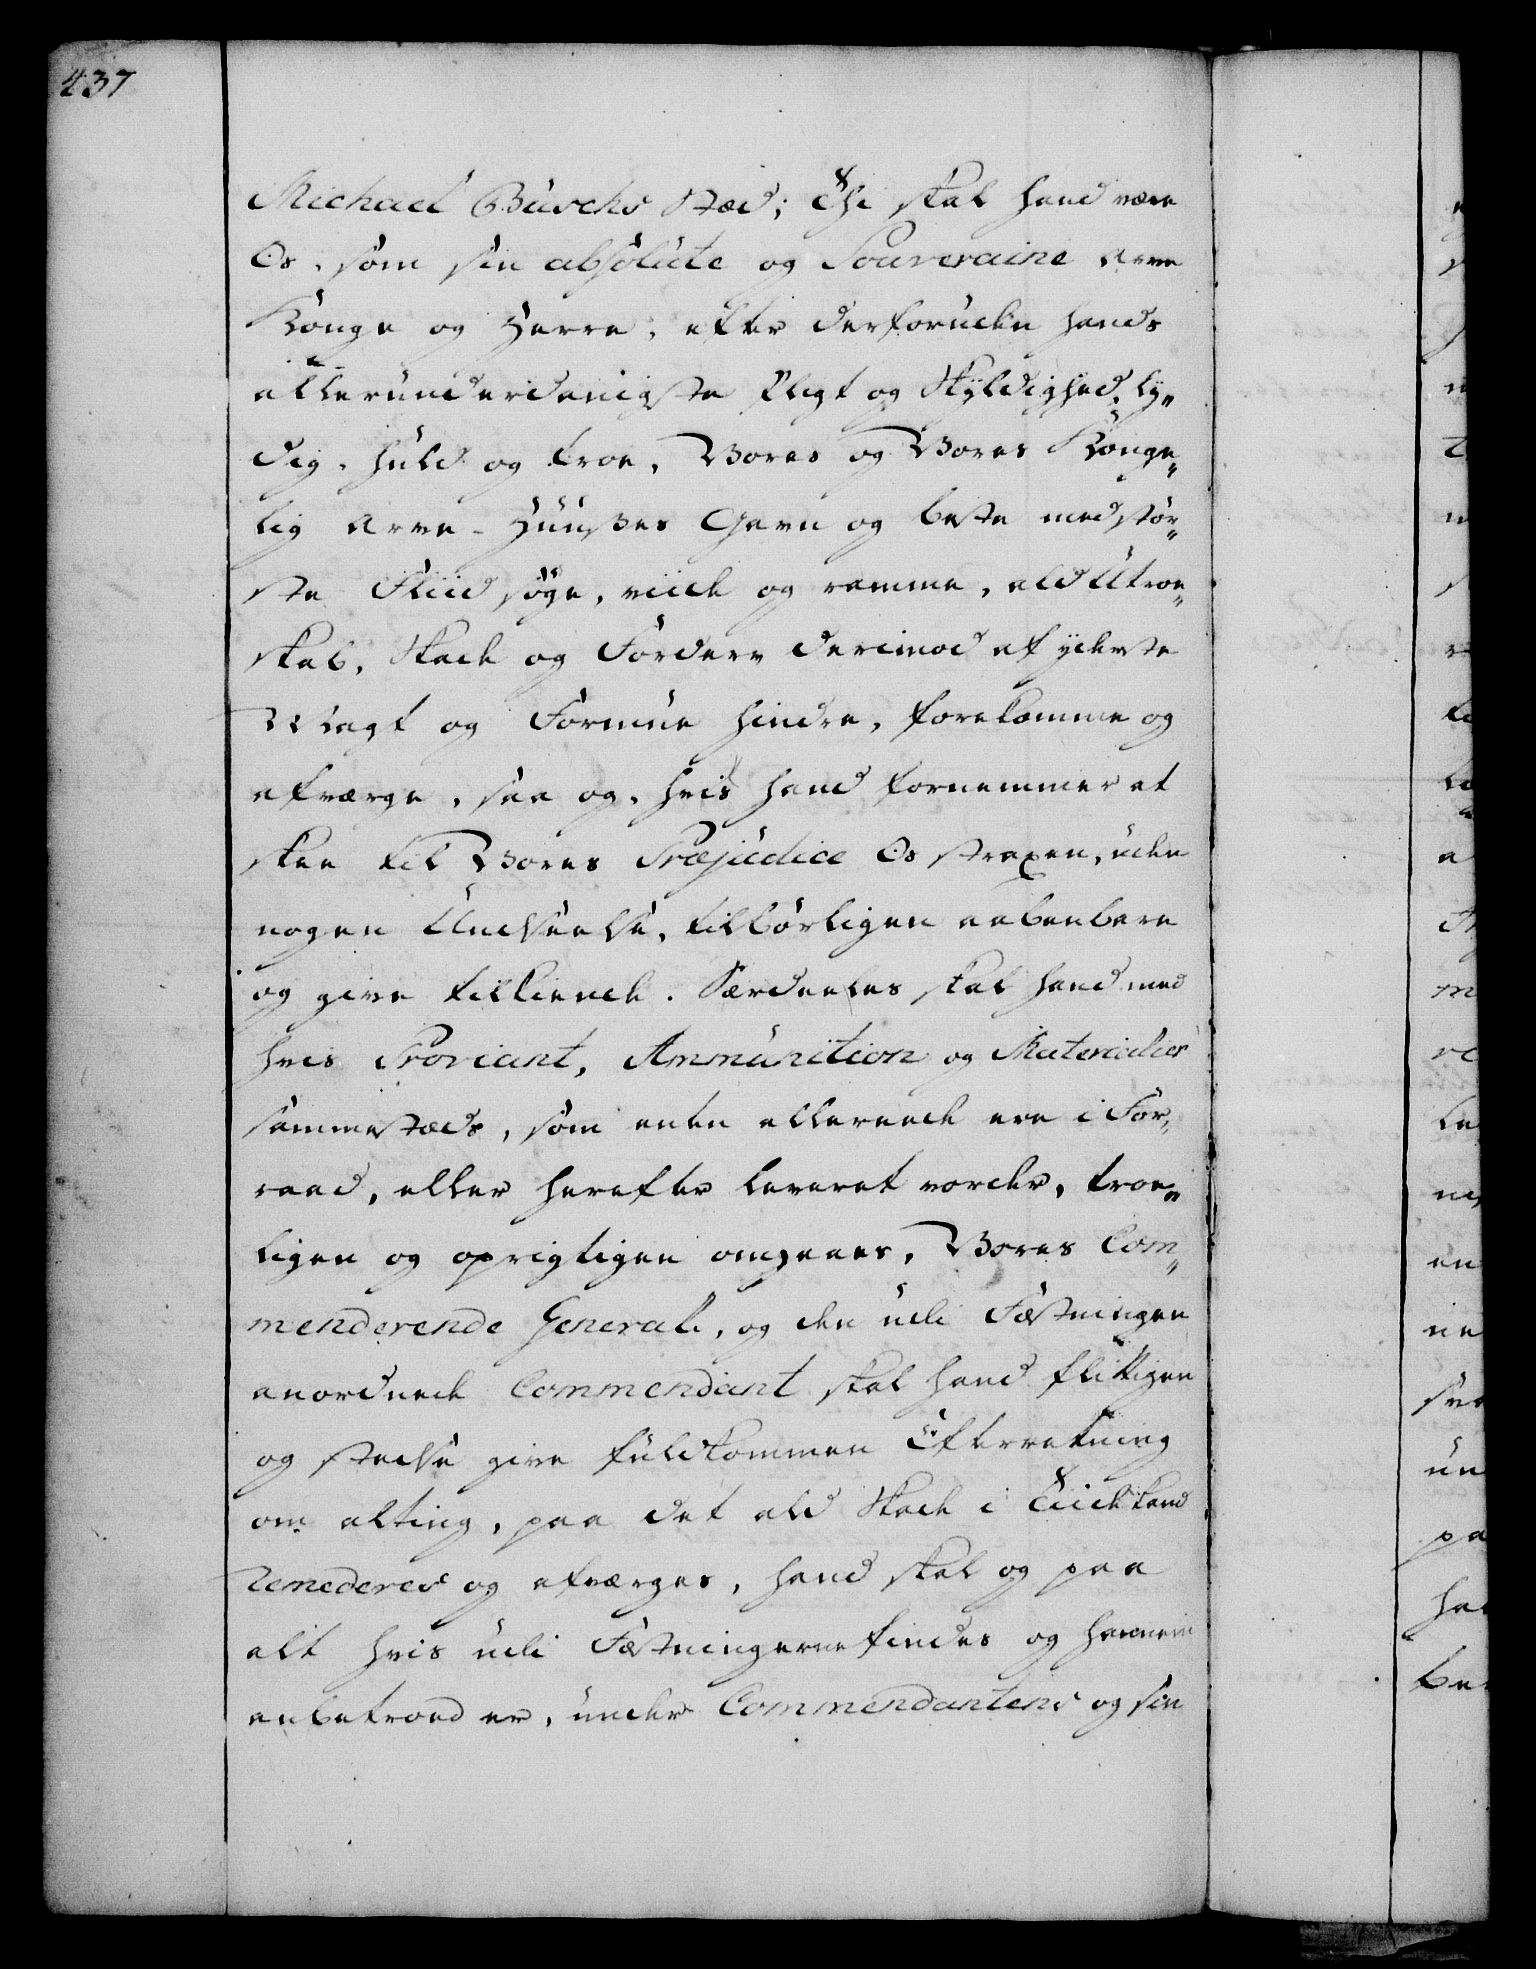 437
Michael Büschs Stæd; Thi skal hand være
Os, som sin absolüte og Souveraine Arve
Konge og Herre, efter derforüden hands
alleründerdanigste Pligt og Skyldighed, ly„
dig, hüld og troe, Vores og Vores Konge„
lig Arve-Hüüses Gavn og beste med stör„
ste Fliid söge, viide og ramme, ald Utroe„
skab, Skade og Forderv derimod af yderste
Magt og Formüe hindre, forekomme og
afværge, saa og, hvis hand fornemmer at
skee til Vores Præjüdice Os straxen, üden
nogen Undseelse, tilbörligen aabenbare
og give tilkiende. Særdeeles skal hand med
hvis Proviant, Ammünition og Materialier
sammestæds, som enten allereede ere i For„
raad, eller herefter leveret vorder, troe„
ligen og oprigtigen omgaaes, Vores Com„
menderende General, og den üdi Fæstningen
anordnede Commendant skal hand flittigen
og stedse give füldkommen Efterretning
om alting, paa det ald Skade i Tiide kand
remederes og afværges, hand skal og paa
alt hvis üdi Fæstningerne findes og hannem
anbetroed er, ünder Commendantens og sin